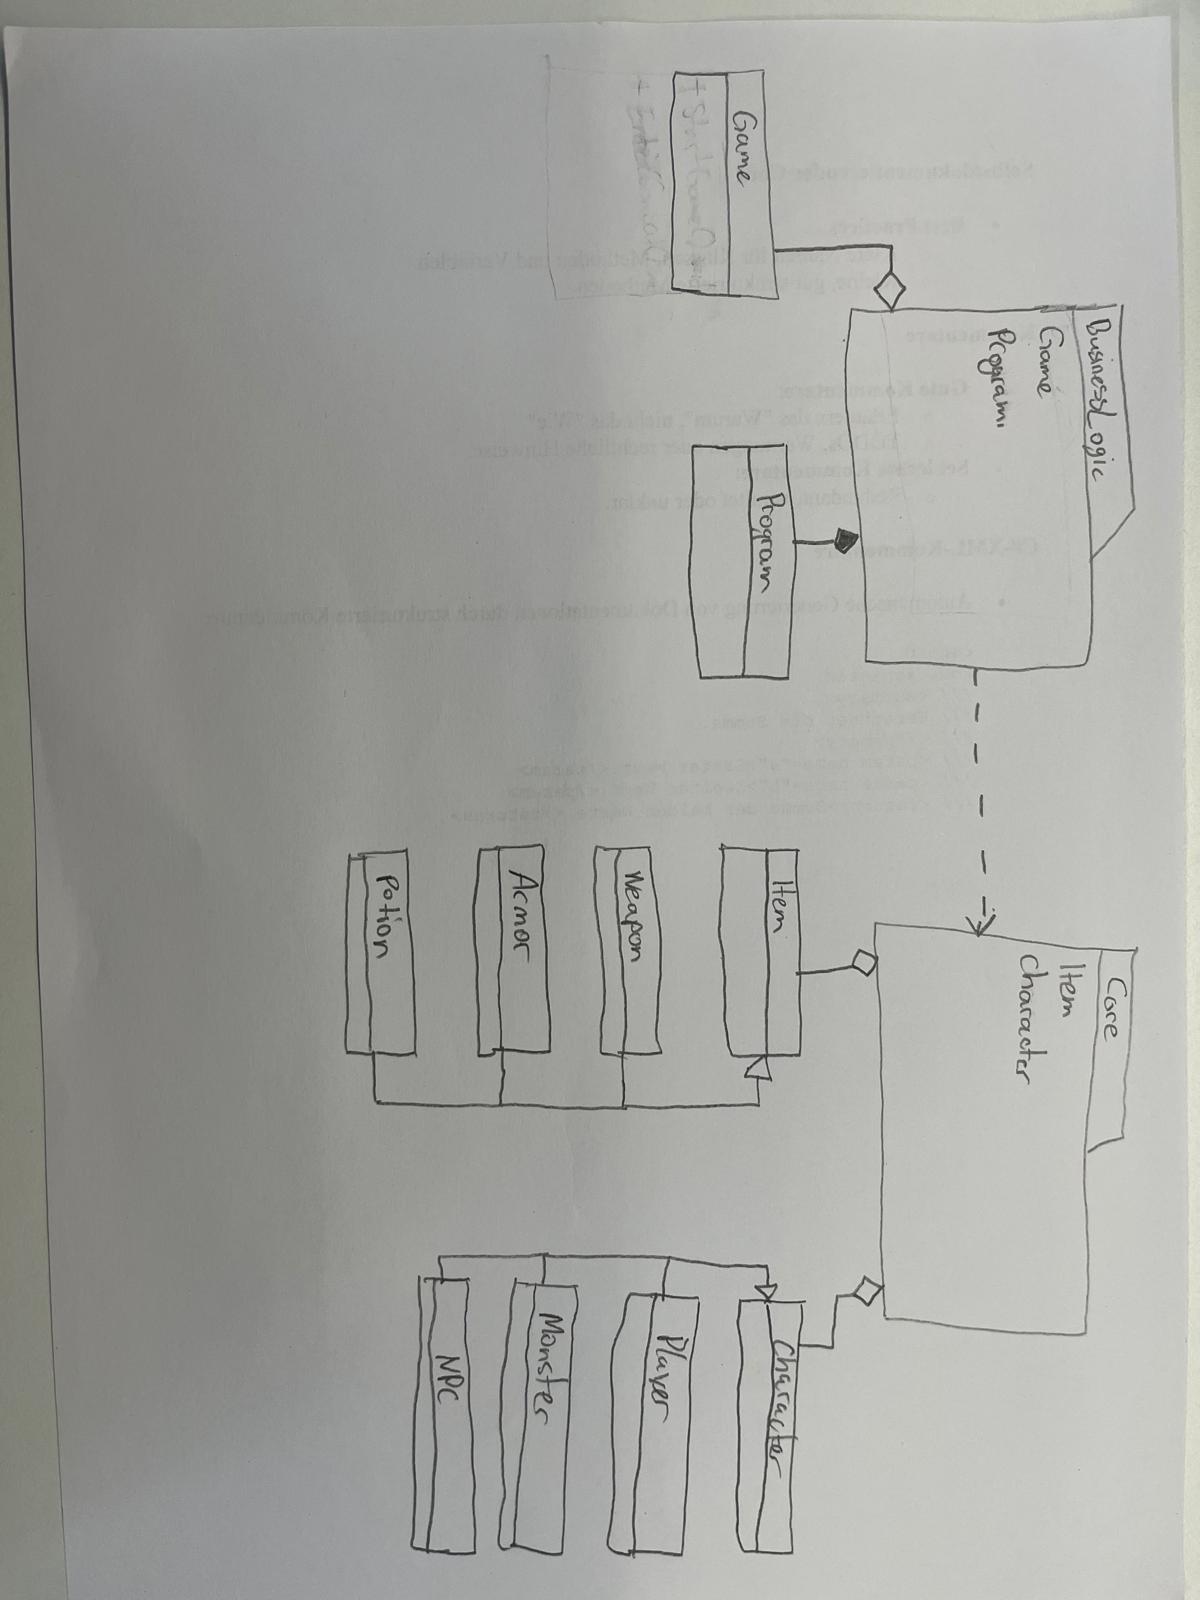 BusinessLogic
Game
Program.
Core
Item
Character
Game
+ StartGame()
Program
Item
Weapon
Armor
Potion
Character
Player
Monster
NPC